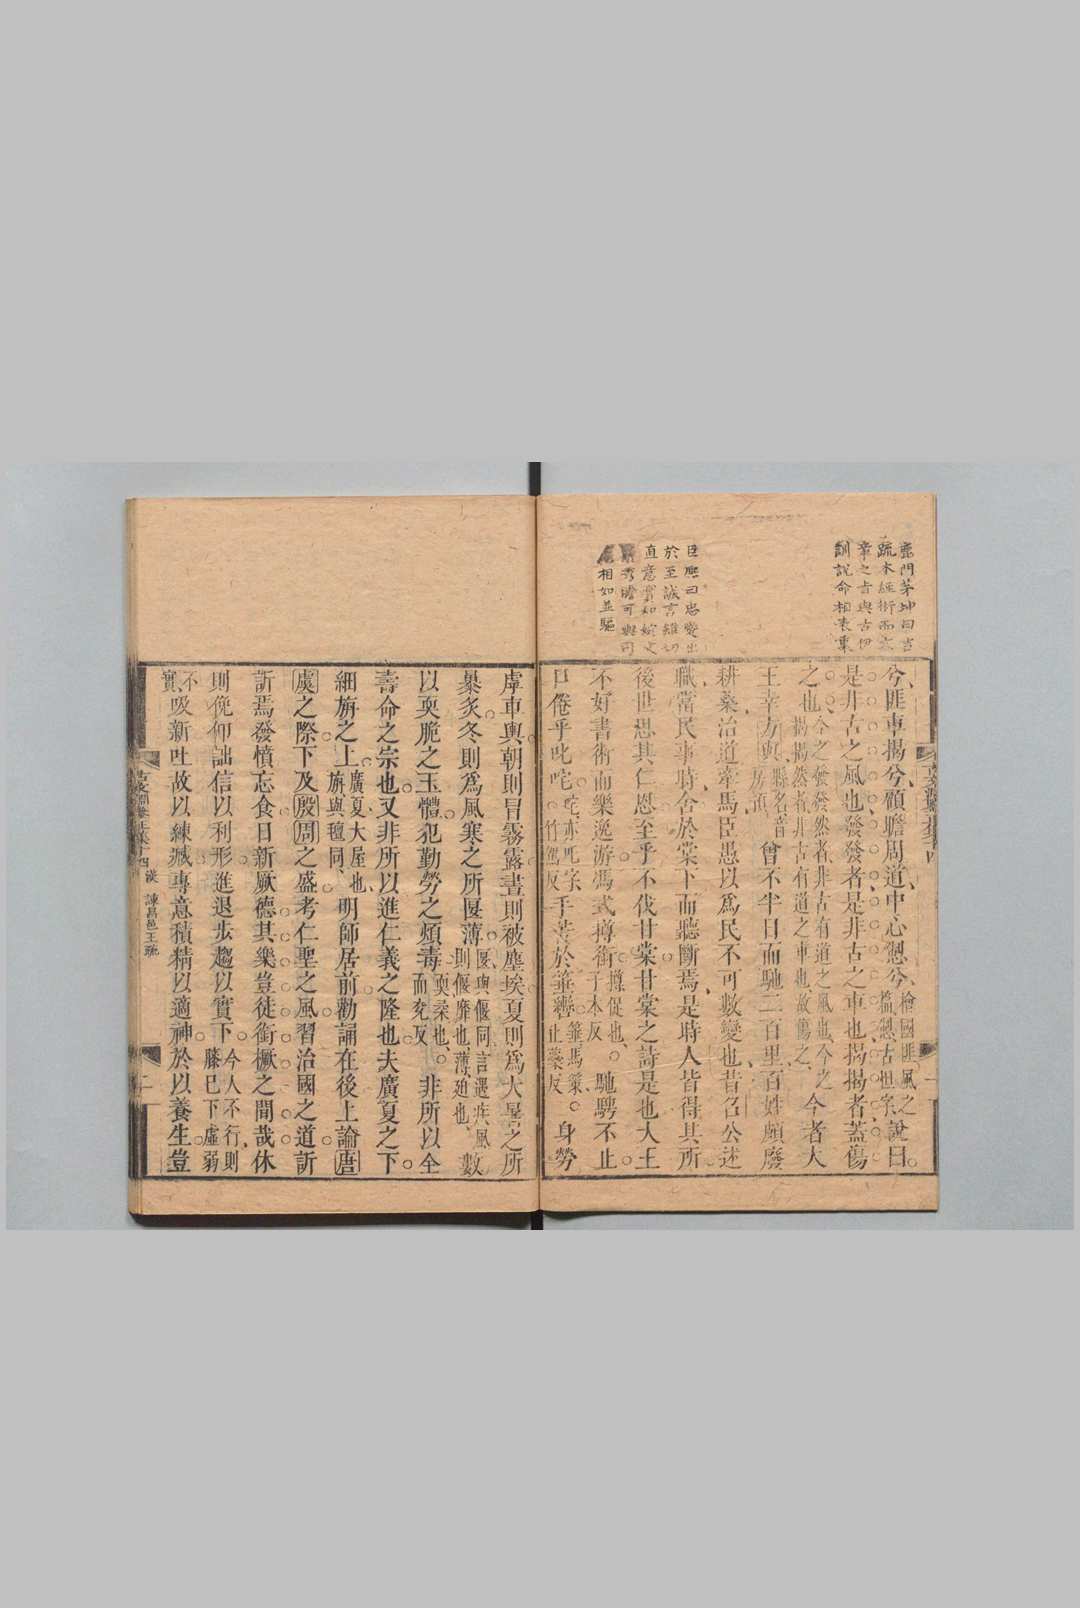 鹿門茅坤曰吉
疏本經術而文
章之旨與古伊
訓說命相表裏
今匪車揭兮顧瞻周道中心㤠兮檜國匪風之𥮅㤠古怛字說曰
是非古之風也發發者是非古之車也揭揭者蓋傷
之也今之發發然者非古有道之風也今之揭揭然者非古有道之車也故傷之今者大
王幸方與縣名音房預曾不半日而馳二百里百姓頗廢
耕桑治道牽馬臣愚以爲民不可數變也昔召公述
職當民事時舍於棠下而聽斷焉是時人皆得其所
後世思其仁恩至乎不伐甘棠甘棠之詩是也大王
不好書術而樂逸游馮式撙銜撙促也子本反馳騁不止
口倦乎叱咤咤亦吒字竹駕反手苦於箠轡箠馬策止蘂反身勞
臣應曰忠愛出
於至誠言雖切
直意實和婉文
秀贍可與司
相如並驅
虖車輿朝則冒霧露晝則被塵埃夏則爲大暑之所
暴炙冬則爲風寒之所匽薄匽與偃同言遇疾風則偃靡也薄迫也數
以耎脆之玉體犯勤勞之煩毒耎柔也而兗反非所以全
壽命之宗也又非所以進仁義之隆也夫廣夏之下
細旃之上廣夏大屋也旃與氊同明師居前勸誦在後上論唐
虞之際下及殷周之盛考仁聖之風習治國之道訢
訢焉發憤忘食日新厥德其樂豈徒銜橛之間哉休
則俛仰詘信以利形進退步趨以實下今人不行則膝已下虛弱
不實吸新吐故以練臧專意積精以適神於以養生豈
漢 諫昌邑王疏